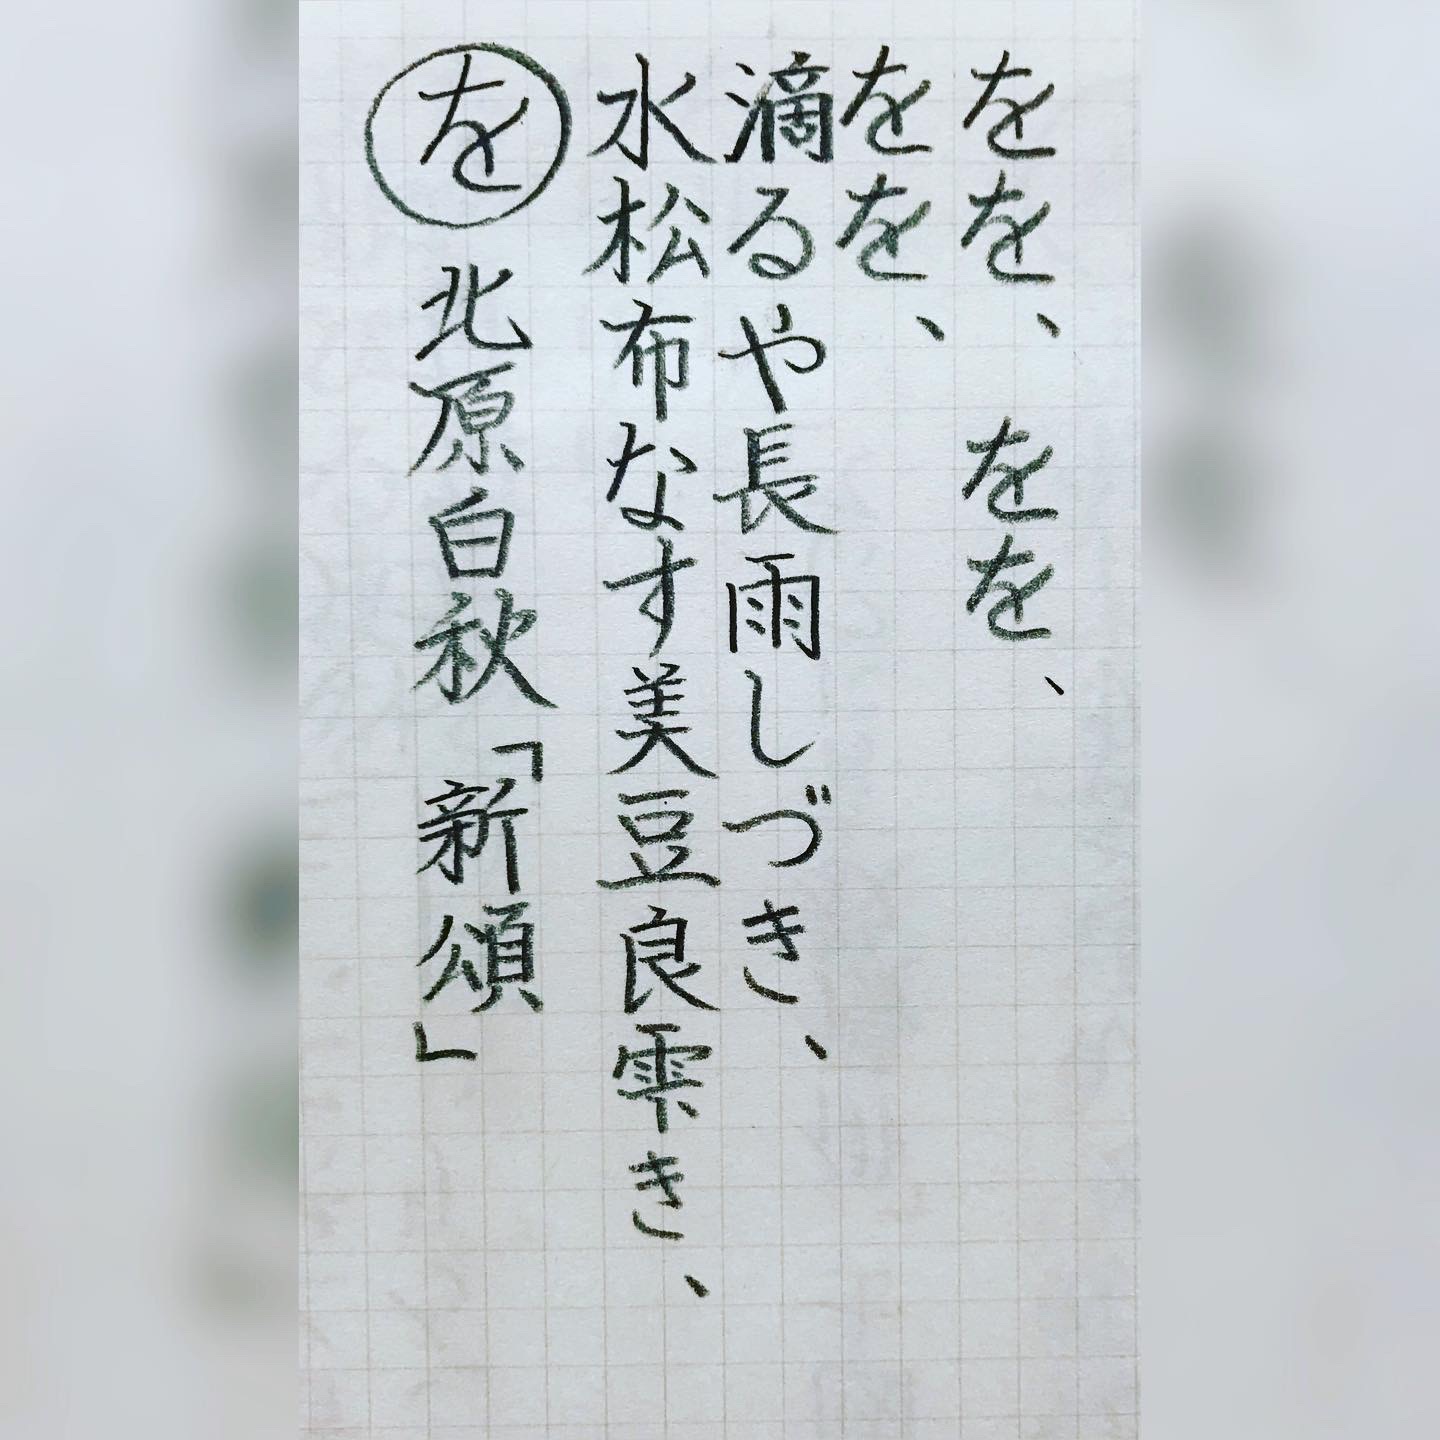 をを、をを、
をを、
滴るや長雨しづき、
水松布なす美豆良雫き、
を 北原白秋「新頌」